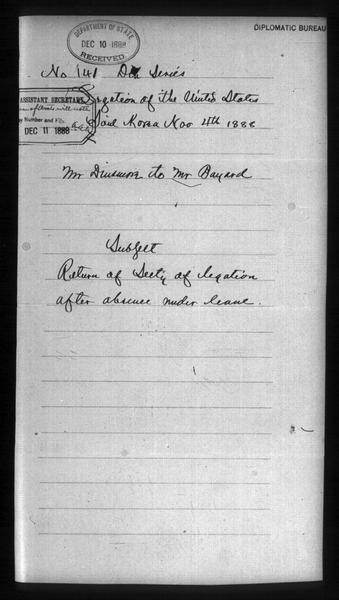 DEPARTMENT OF STATE
DEC 10 1888
RECEIVED
DIPLOMATIC BUREAU
No 141 Series
ASSISTANT SECRETARY
gation of the United States
by Number and File
DEC 11 1888
Korea Nov 4th 1888
Mr Dinsmore to Mr Bayard
Subject
Return of Secty of legation
after absence under leave.